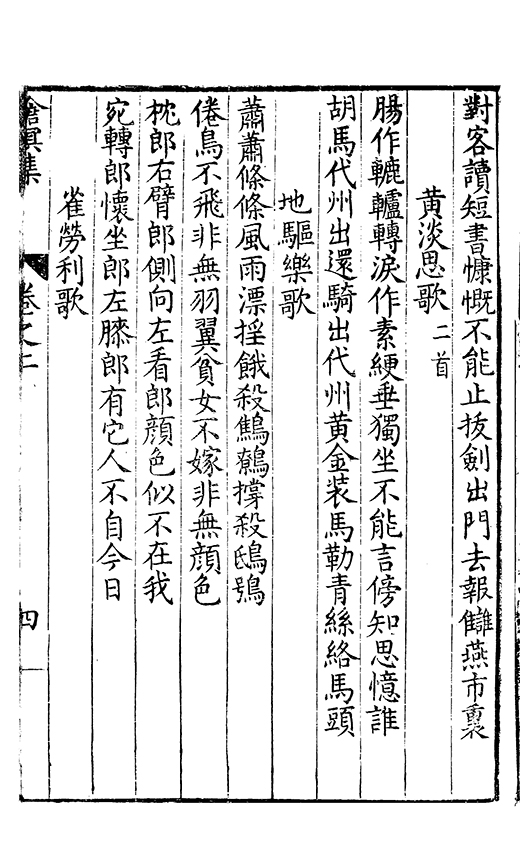 對客讀短書慷慨不能止拔劍出門去報讎燕市裏
黄淡思歌 二首
腸作轆轤轉淚作素綆垂獨坐不能言傍知思憶誰
胡馬代州出還騎出代州黄金装馬勒青絲絡馬頭
地驅樂歌
蕭蕭條條風雨漂揺餓殺鷦鷯撐殺鴟鴞
倦鳥不飛非無羽翼貧女不嫁非無顔色
枕郎右臂郎側向左看郎顔色似不在我
宛轉郎懷坐郎左膝郎有它人不自今日
雀勞利歌
滄溟集
卷之二
四